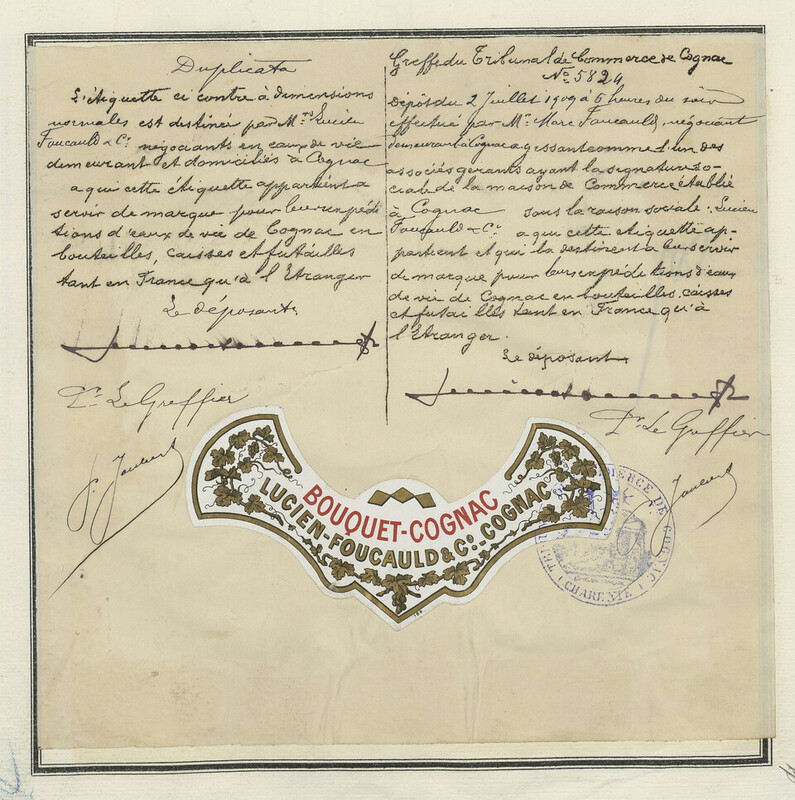 Duplicata
L'étiquette ci contre à dimensions
normales est destinée par Mrs Lucien
Foucauld & Co négociants en eaux de vie
demeurant et domiciliés à Cognac
a qui cette étiquette appartient a
servir de marque pour leurs expédi
tions d'eaux de vie de Cognac en
bouteilles, caisses et futailles
tant en France qu'à l'Etranger
Le déposant.
Pr. Le Greffier
Greffe du Tribunal de Commerce de Cognac
No. 5824
Dépôt du 2 Juillet 1909 à 5 heures du soir
effectué par Mr. Marc Foucauld, négociant
demeurant à Cognac agissant comme l'un des
associés gerants ayant la signature so-
ciale de la maison de Commerce établie
à Cognac sous la raison sociale: Lucien
Foucauld & Co. a qui cette etiquette ap-
partient et qui la destinent a leur servir
de marque pour leurs expéditions d'eaux
de vie de Cognac en bouteilles, caisses
et futailles tant en France qu'à
l'Etranger.
Le déposant
Pr. Le Greffier
BOUQUET-COGNAC
LUCIEN-FOUCAULD & Co.-COGNAC
COMMERCE DE COGNAC
(CHARENTE)